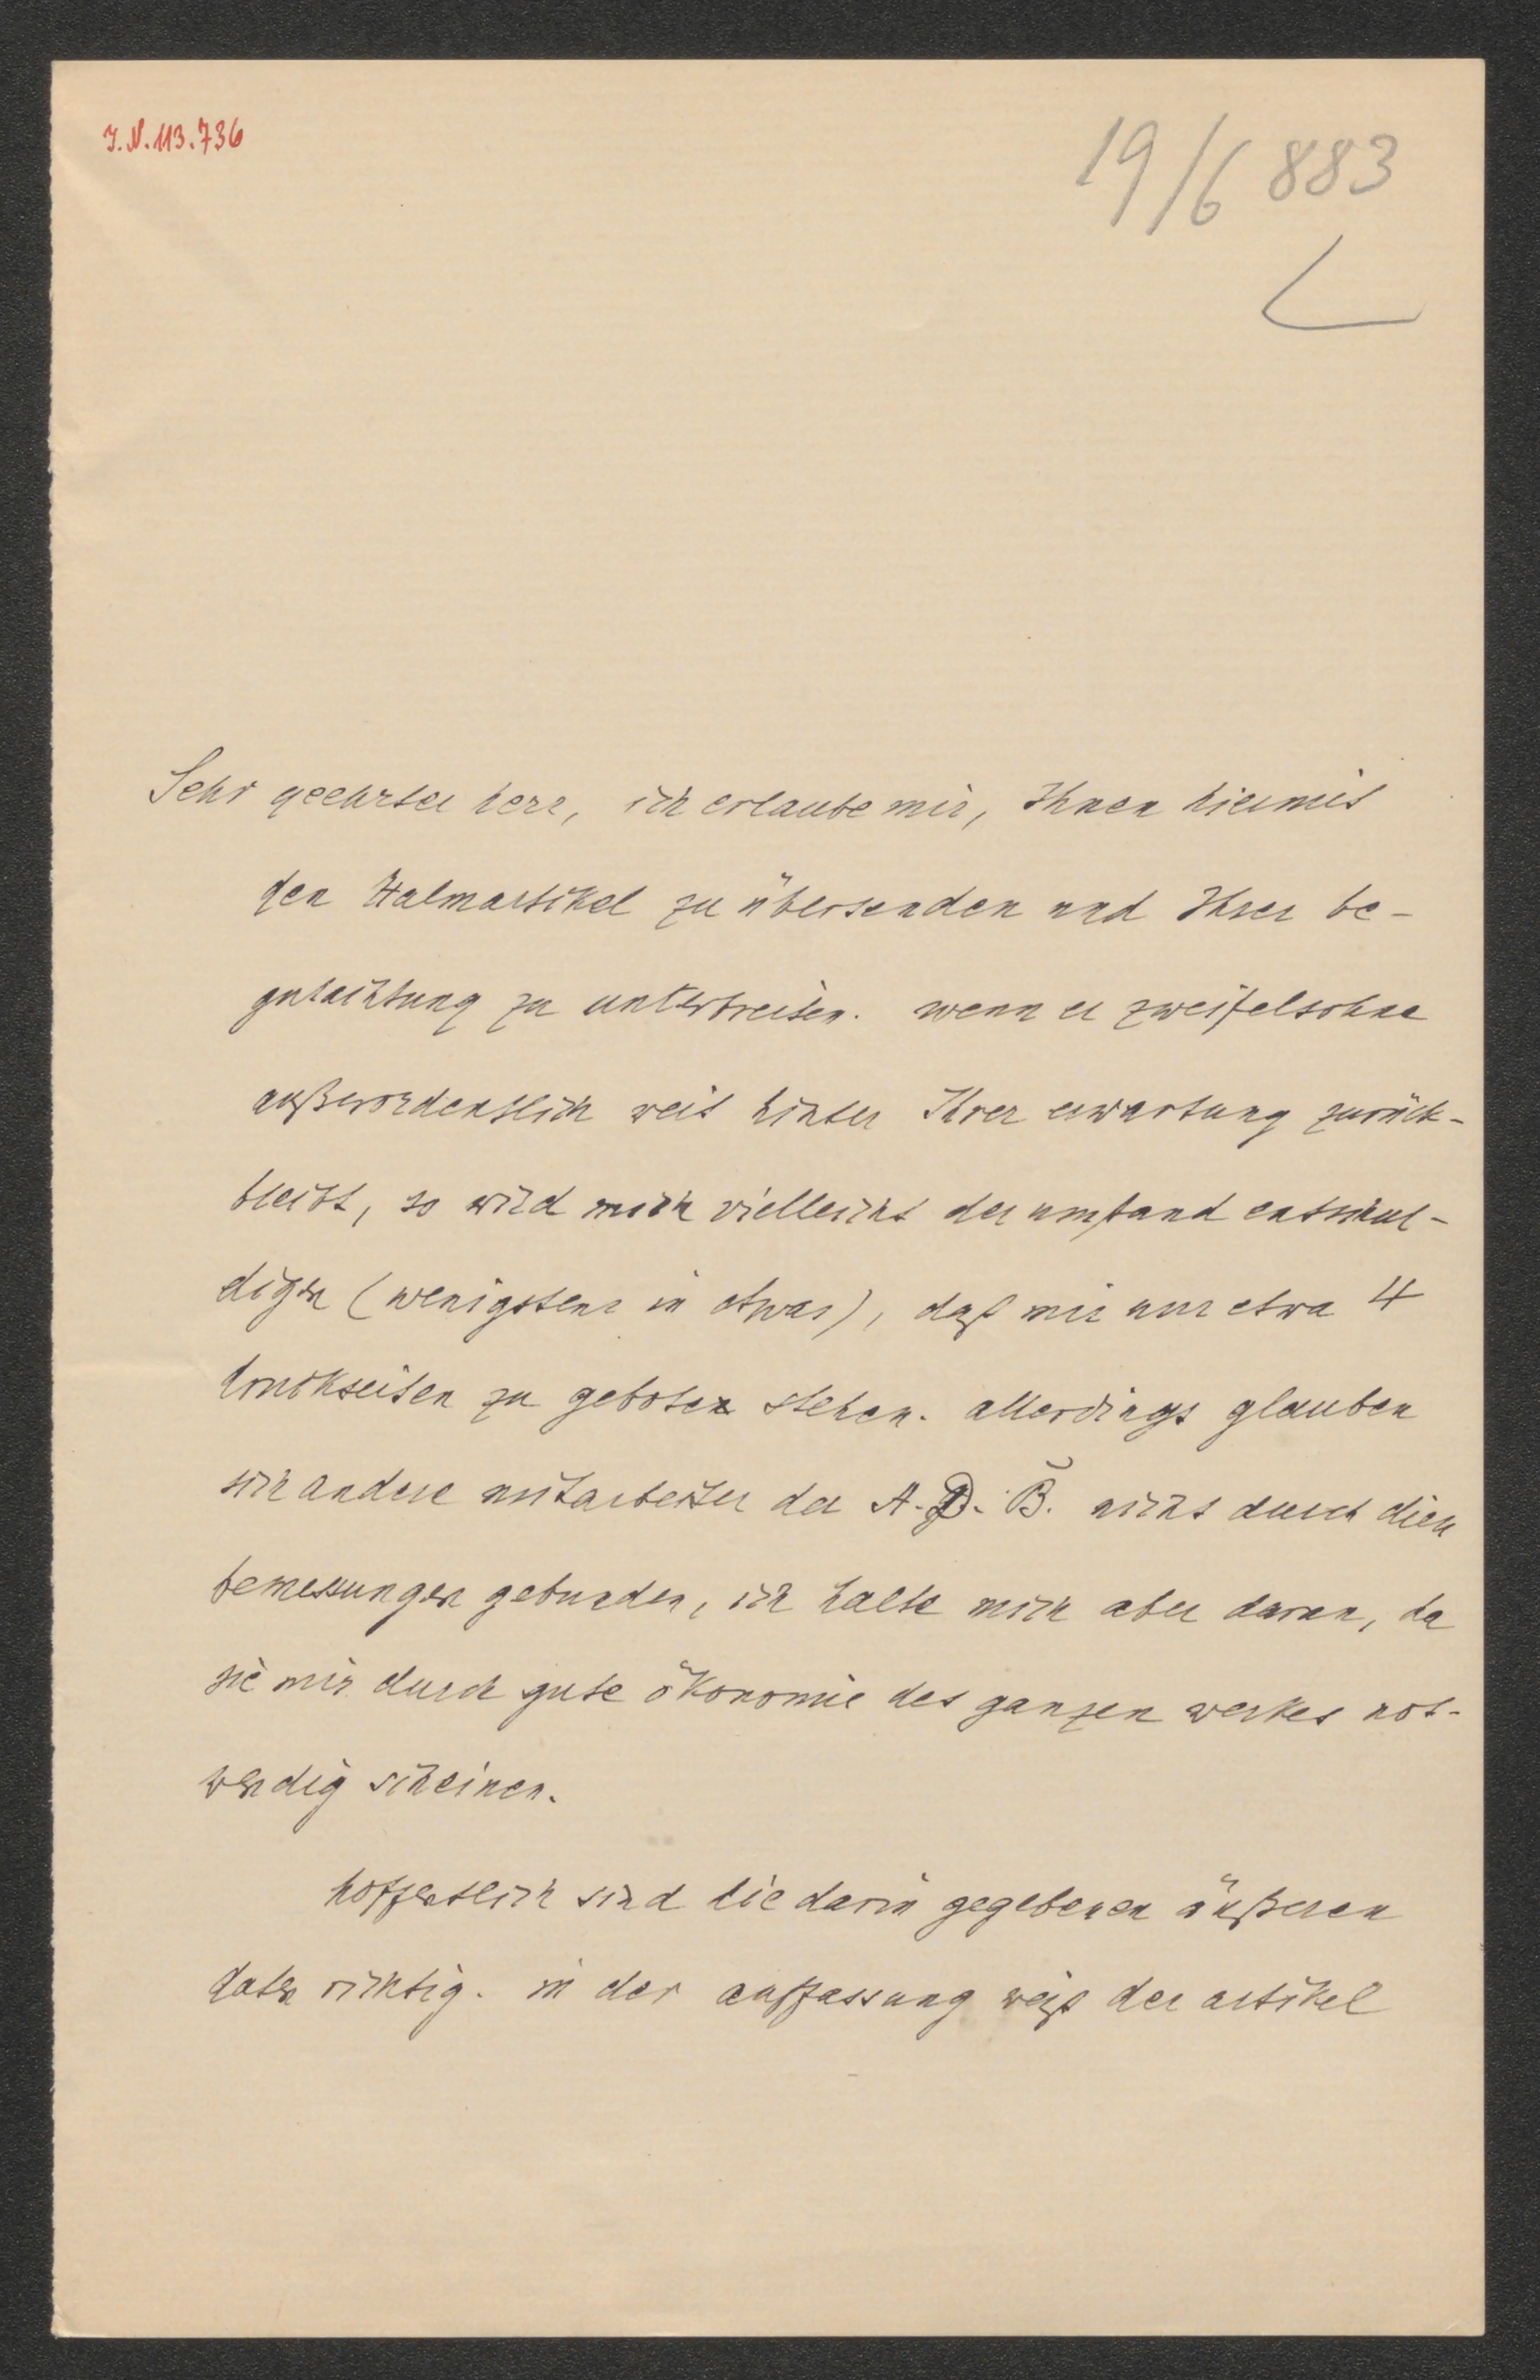 J.N. 113.736
19/6 883
Sehr geehrter herr, ich erlaube mir, Ihnen hiermit
den Halmartikel zu übersenden und Ihrer be-
gutachtung zu unterbreiten. wenn er zweifelsohne
außerordentlich weit hinter Ihrer erwartung zurück-
bleibt, so wird mich vielleicht der umstand entschul-
digen (wenigstens in etwas), daß mir nur etwa 4
druckseiten zu gebote stehen. allerdings glauben
sich andere mitarbeiter der A. D. B. nicht durch diese
bemessungen gebunden, ich halte mich aber daran, da
sie mir durch gute ökonomie des ganzen werkes not-
wendig scheinen.
hoffentlich sind die darin gegebenen äußeren
daten richtig. in der auffassung weist der artikel